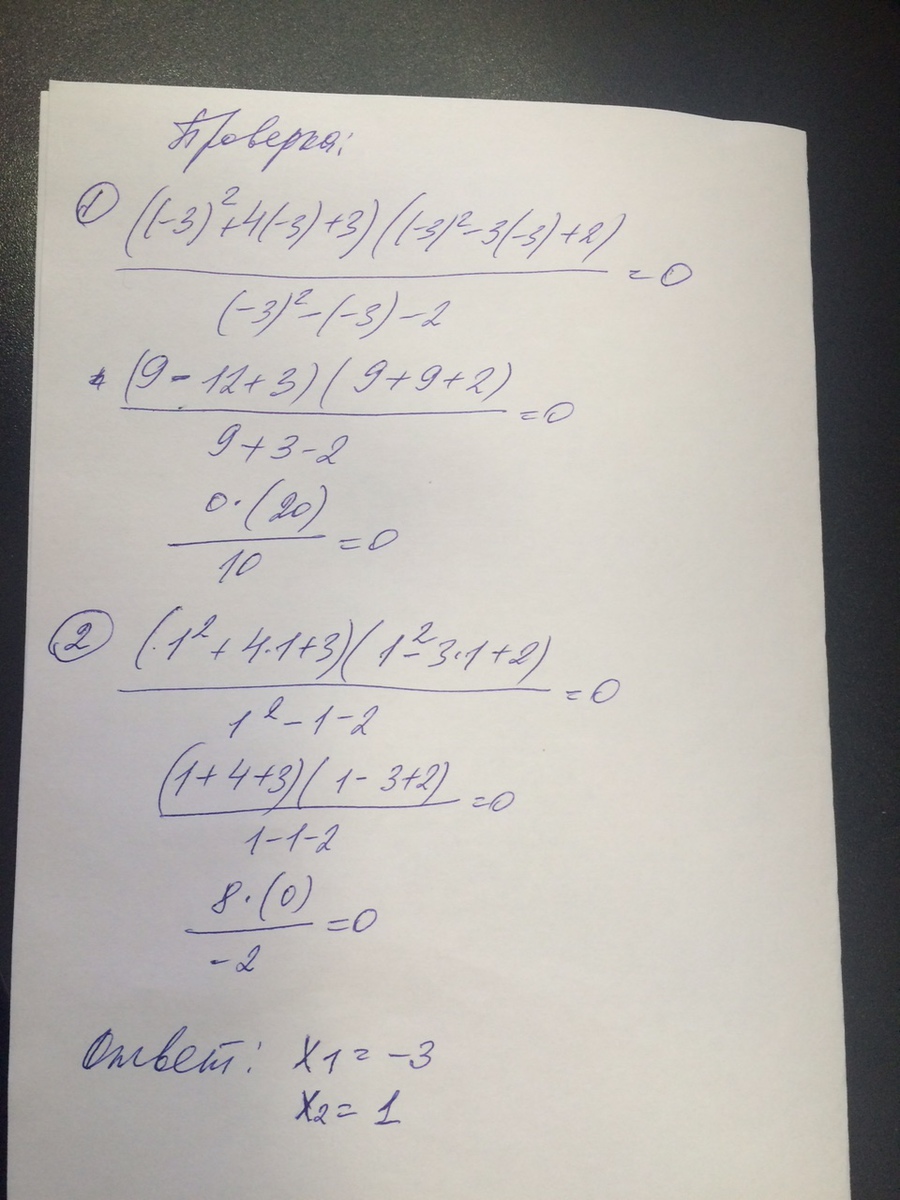 Проверка:
① ((-3)²+4(-3)+3)((-3)²-3(-3)+2)
= 0
(-3)²-(-3)-2
(9-12+3)(9+9+2)
=0
9+3-2
0·(20)
=0
10
② (·1²+4·1+3)(1²-3·1+2)
=0
1²-1-2
(1+4+3)(1-3+2)
=0
1-1-2
8·(0)
=0
-2
Ответ: X1=-3
X2=1